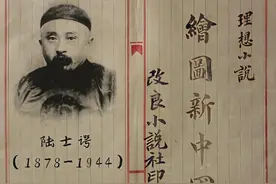 理想小說
繪圖新中
改良小說社印
陆士谔
(1878-1944)